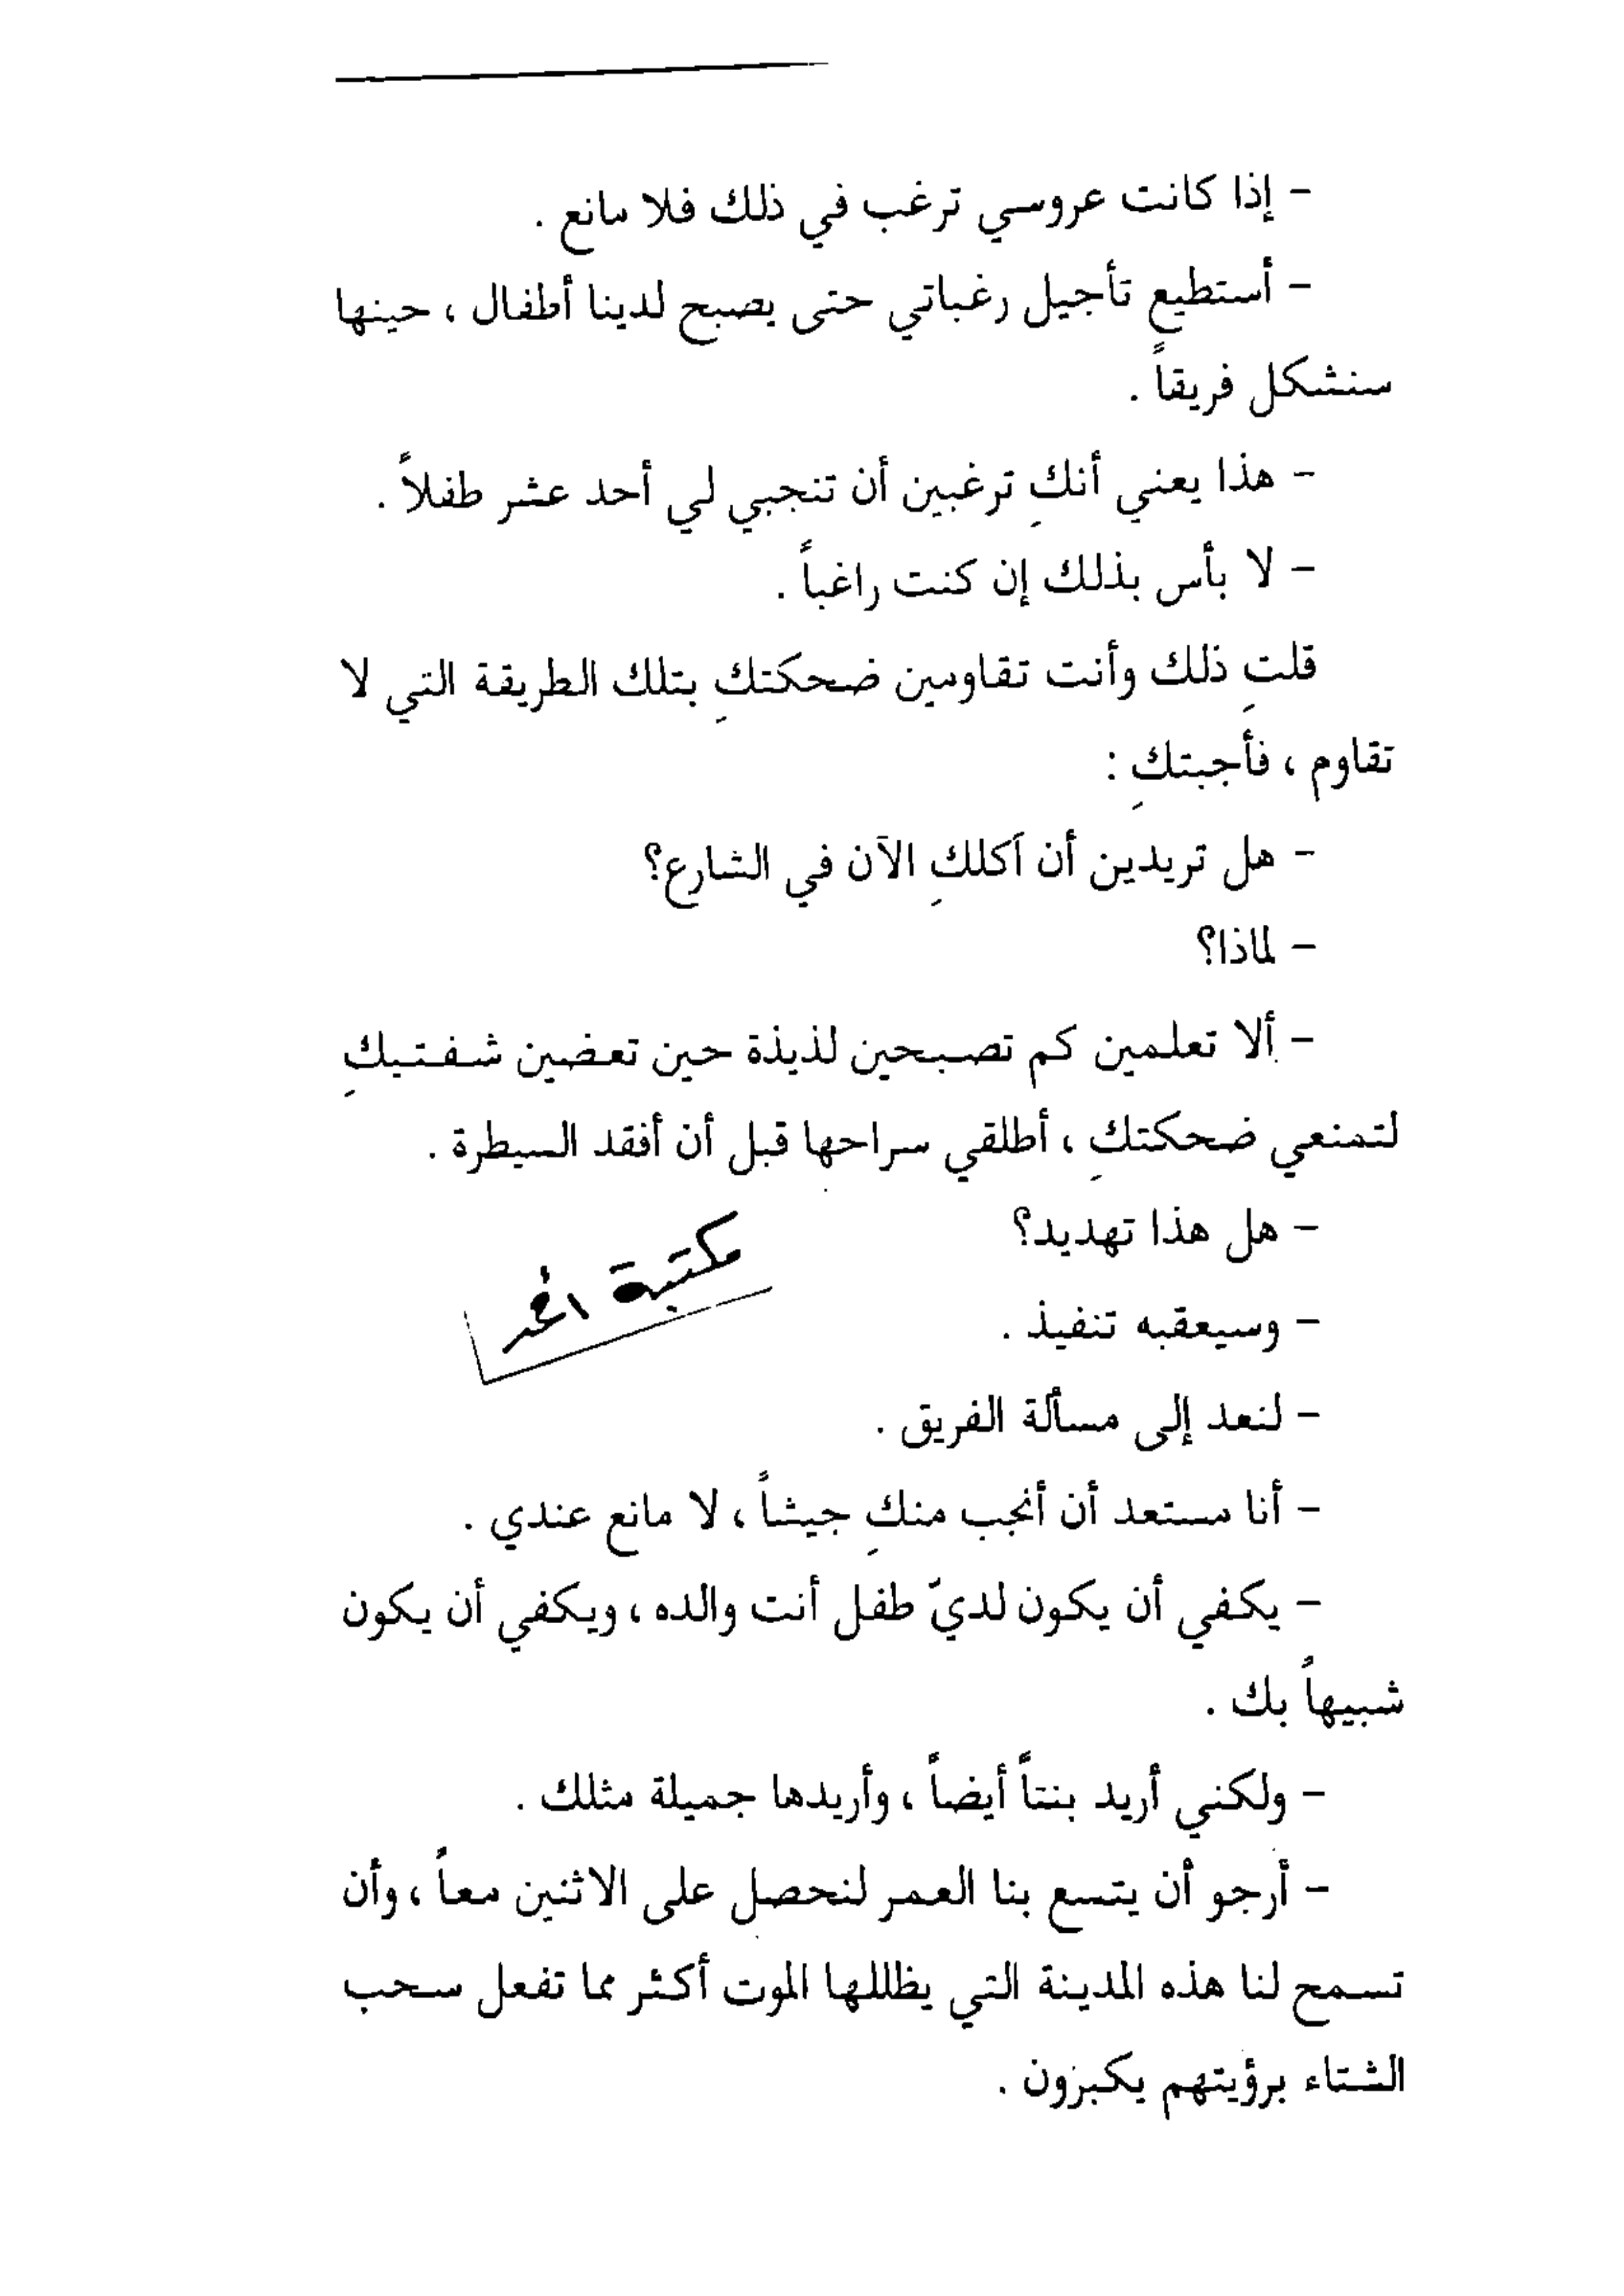 - إذا كانت عروسي ترغب في ذلك فلا مانع .
- أستطيع تأجيل رغباتي حتى يصبح لدينا أطفال ، حينها
سنشكل فريقاً .
- هذا يعني أنكِ ترغبين أن تنجبي لي أحد عشر طفلاً .
- لا بأس بذلك إن كنت راغباً .
قلتِ ذلك وأنت تقاومين ضحكتكِ بتلك الطريقة التي لا
تقاوم ، فأجبتكِ :
- هل تريدين أن آكلكِ الآن في الشارع؟
- لماذا؟
- ألا تعلمين كم تصبحين لذيذة حين تعضين شفتيكِ
لتمنعي ضحكتكِ ، أطلقي سراحها قبل أن أفقد السيطرة .
- هل هذا تهديد؟
مكتبة
- وسيعقبه تنفيذ .
- لنعد إلى مسألة الفريق .
- أنا مستعد أن أنجب منكِ جيشاً ، لا مانع عندي .
- يكفي أن يكون لديّ طفل أنت والده ، ويكفي أن يكون
شبيهاً بك .
- ولكني أريد بنتاً أيضاً ، وأريدها جميلة مثلك .
- أرجو أن يتسع بنا العمر لنحصل على الاثنين معاً ، وأن
تسمح لنا هذه المدينة التي يظللها الموت أكثر مما تفعل سحب
الشتاء برؤيتهم يكبرون .